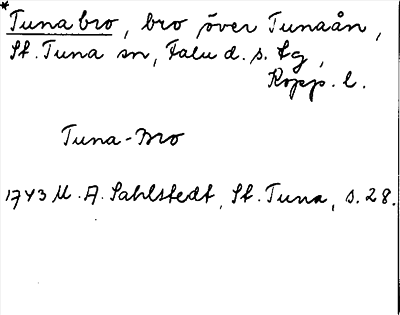 *Tuna bro, bro över Tunaån,
St. Tuna sn, Falu d. s. tg,
Kopp. l.
Tuna-Bro
1743 M. A. Sahlstedt, St. Tuna, s. 28.